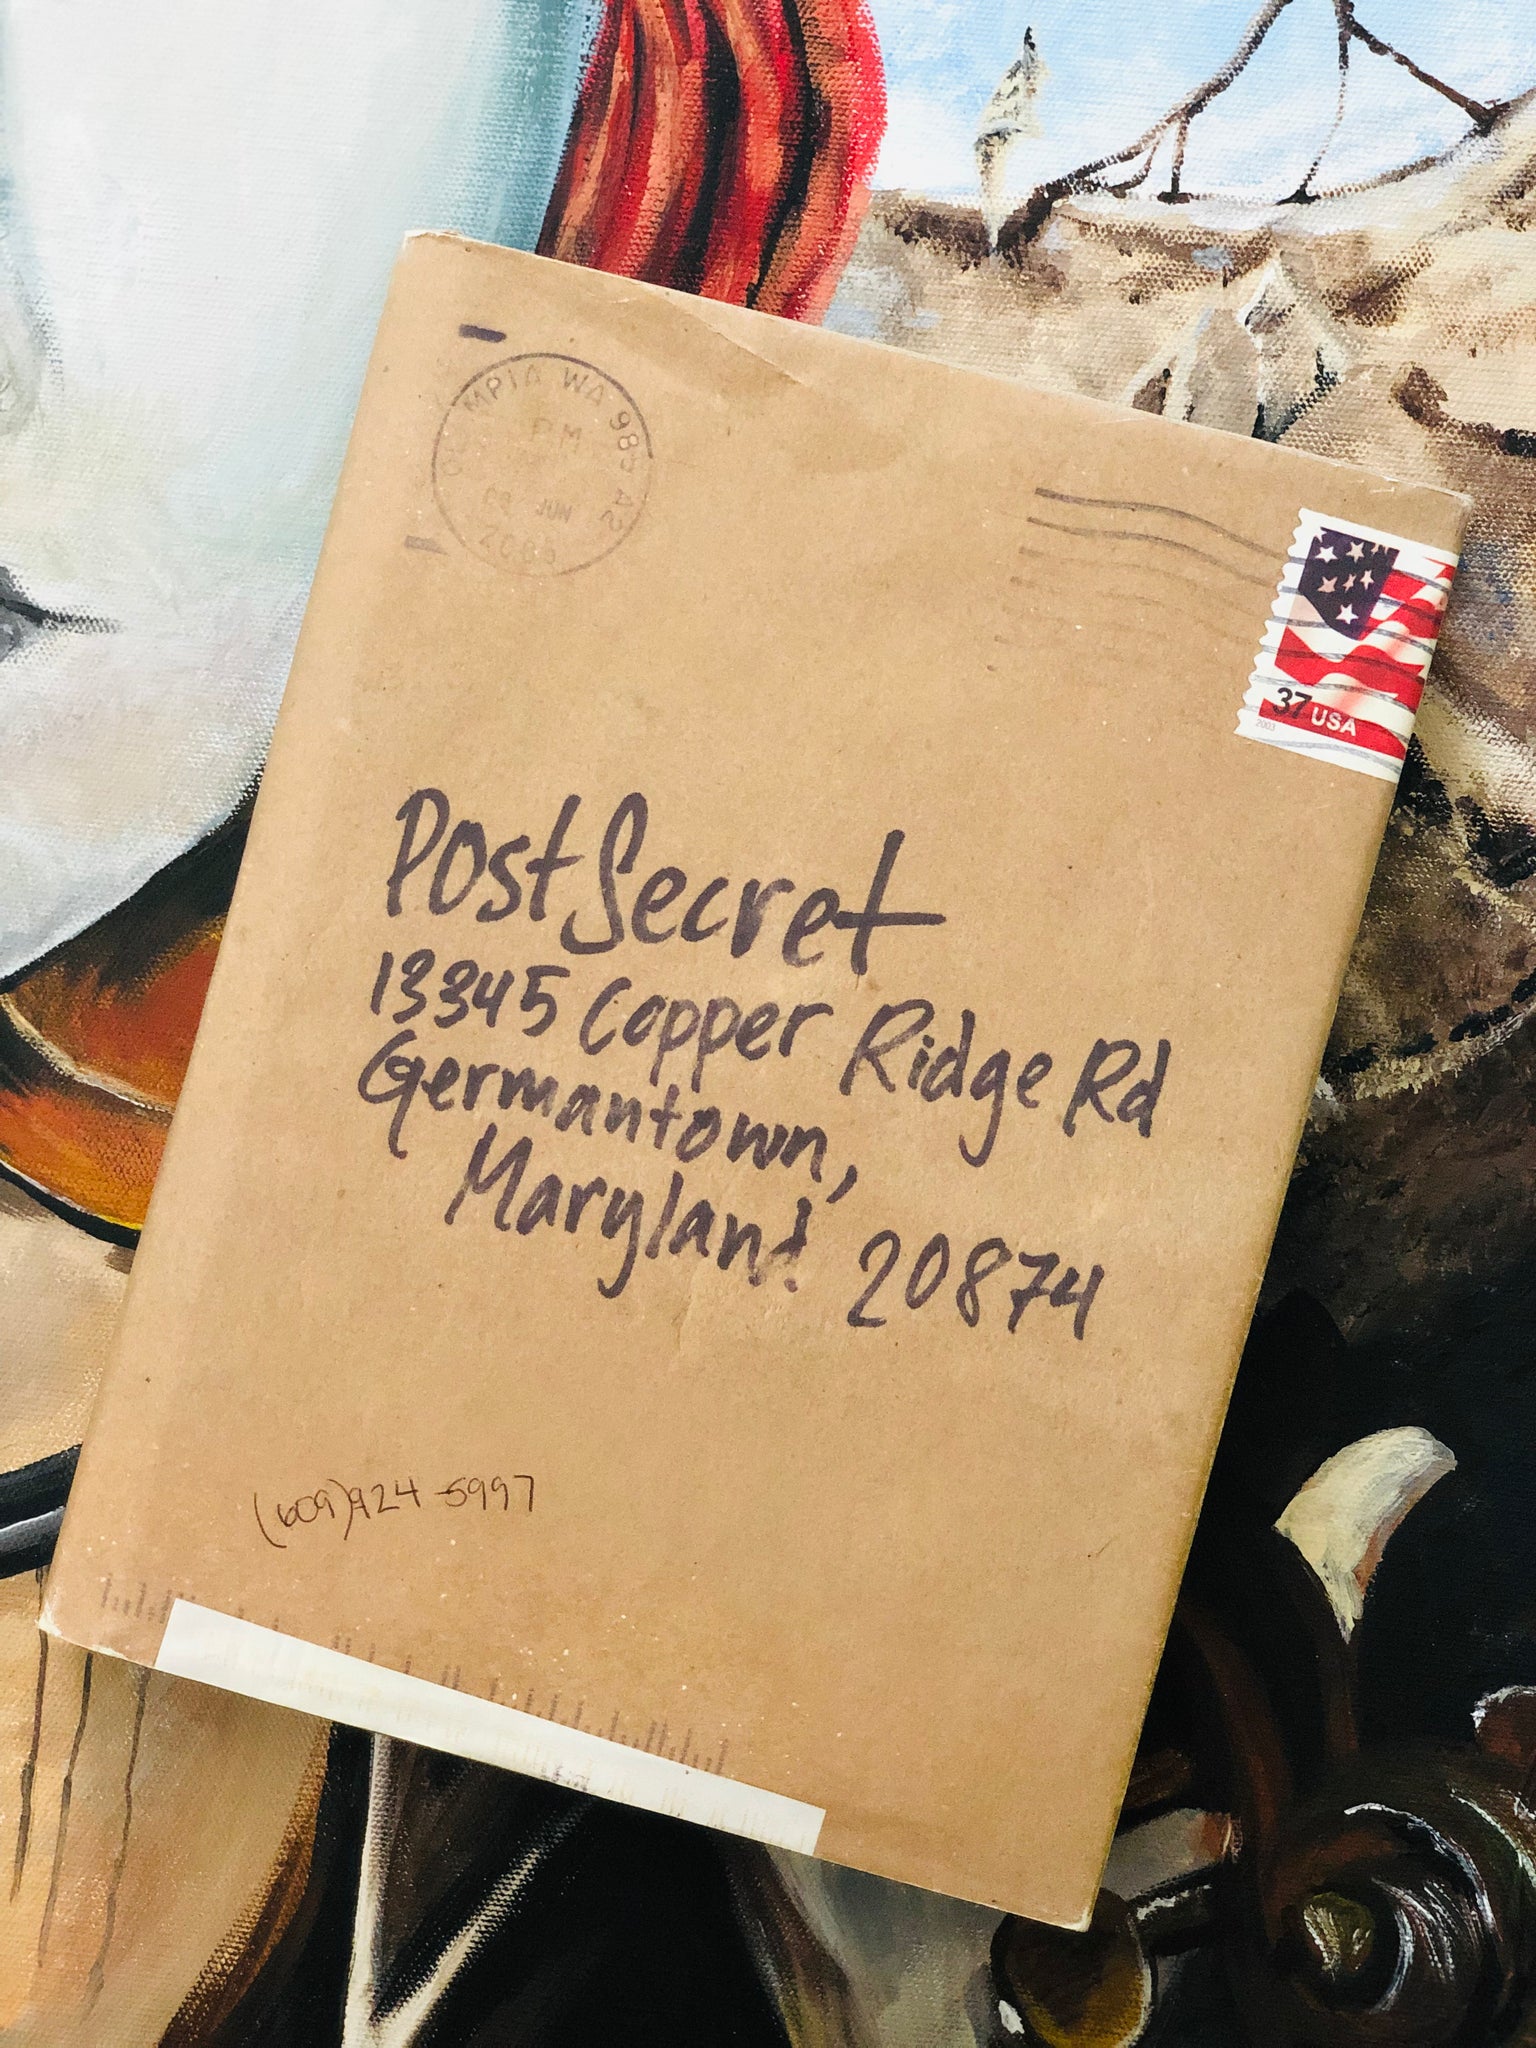 OLYMPIA WA 985
PM
JUN
37 USA
2003
PostSecret
13345 Copper Ridge Rd
Germantown,
Maryland 20874
(609)924-5997